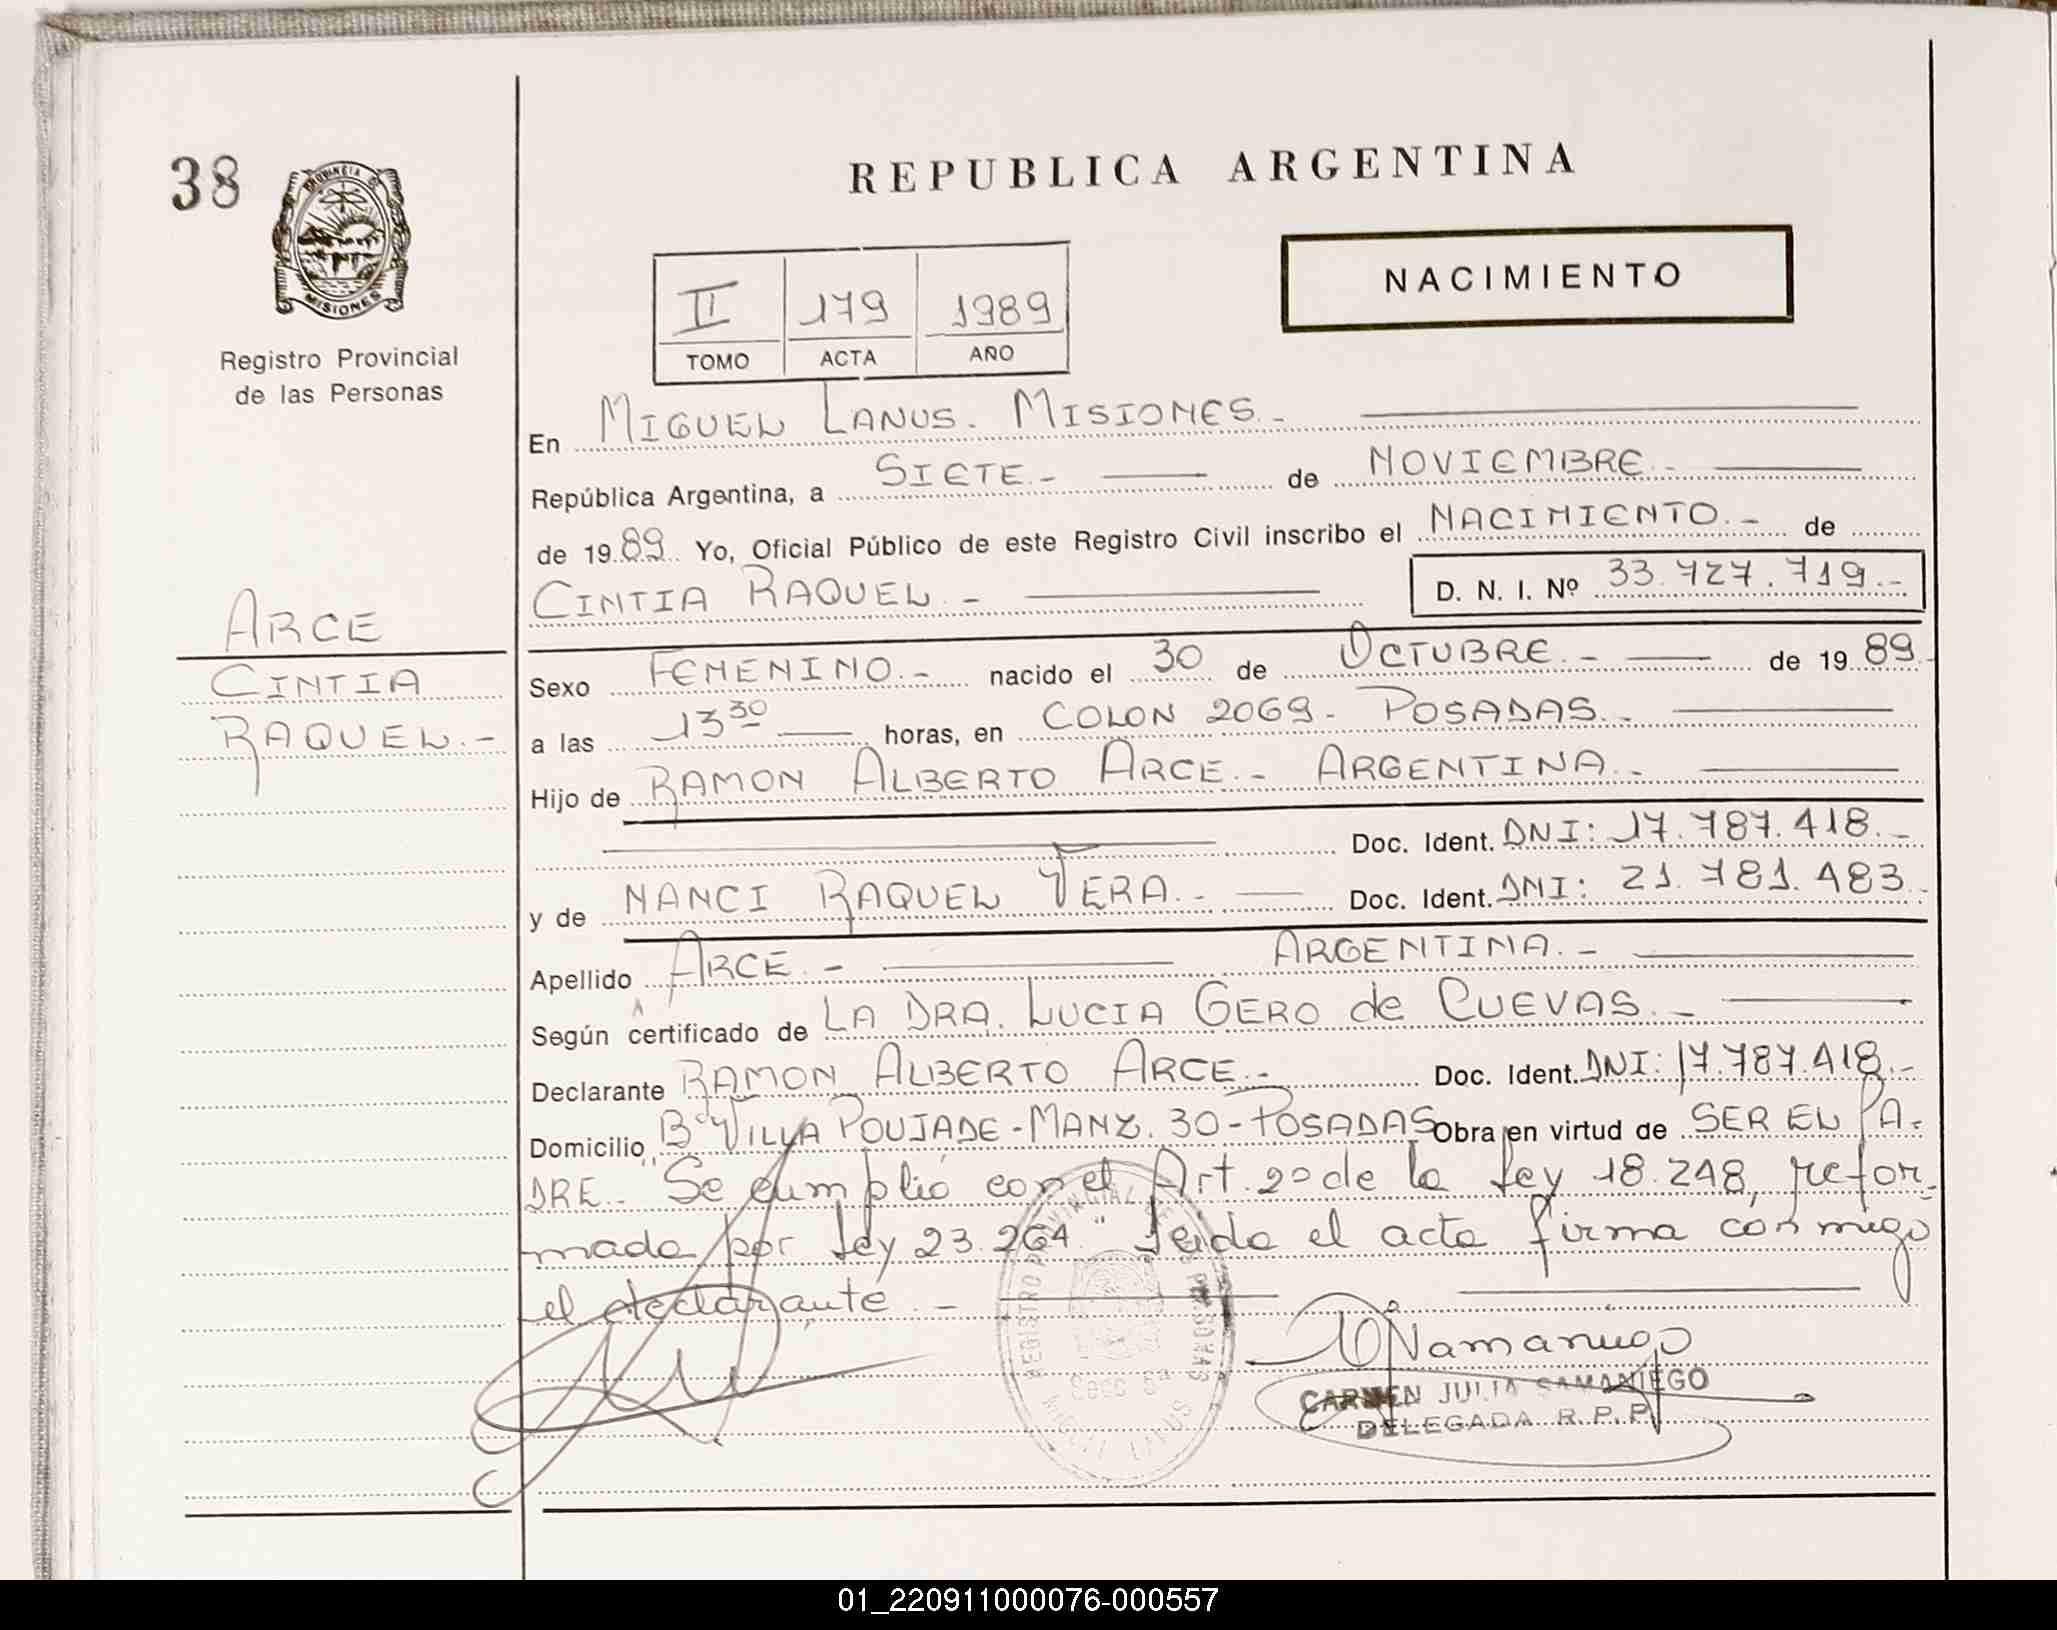 38
PROVINCIA DE
MISIONES
Registro Provincial
de las Personas
REPUBLICA ARGENTINA
NACIMIENTO
II 179 1989
TOMO ACTA AÑO
En MIGUEL LANUS. MISIONES.-
República Argentina, a SIETE.- de NOVIEMBRE.-
de 1989 Yo, Oficial Público de este Registro Civil inscribo el NACIMIENTO.- de
CINTIA RAQUEL.- D. N. I. Nº 33.727.719.-
ARCE
CINTIA
RAQUEL.-
Sexo FEMENINO.- nacido el 30 de OCTUBRE.- de 1989.
a las 13 30 horas, en COLON 2069. POSADAS.-
Hijo de RAMON ALBERTO ARCE.- ARGENTINA.-
Doc. Ident. DNI: 17.787.418.-
y de NANCI RAQUEL VERA.- Doc. Ident. DNI: 21.781.483.
Apellido ARCE.- ARGENTINA.-
Según certificado de LA DRA. LUCIA GERO de CUEVAS.-
Declarante RAMON ALBERTO ARCE.- Doc. Ident. DNI: 17.787.418.-
Domicilio Bº VILLA POUJADE-MANZ. 30-POSADAS Obra en virtud de SER EL PA-
DRE.- "Se cumplió con el Art. 2º de la Ley 18.248, refor-
mada por Ley 23.264." Leida el acta firma conmigo
el declarante.-
REGISTRO PROVINCIAL DE LAS PERSONAS
MIGUEL LANUS
CARMEN JULIA SAMANIEGO
DELEGADA R.P.P.
01_220911000076-000557